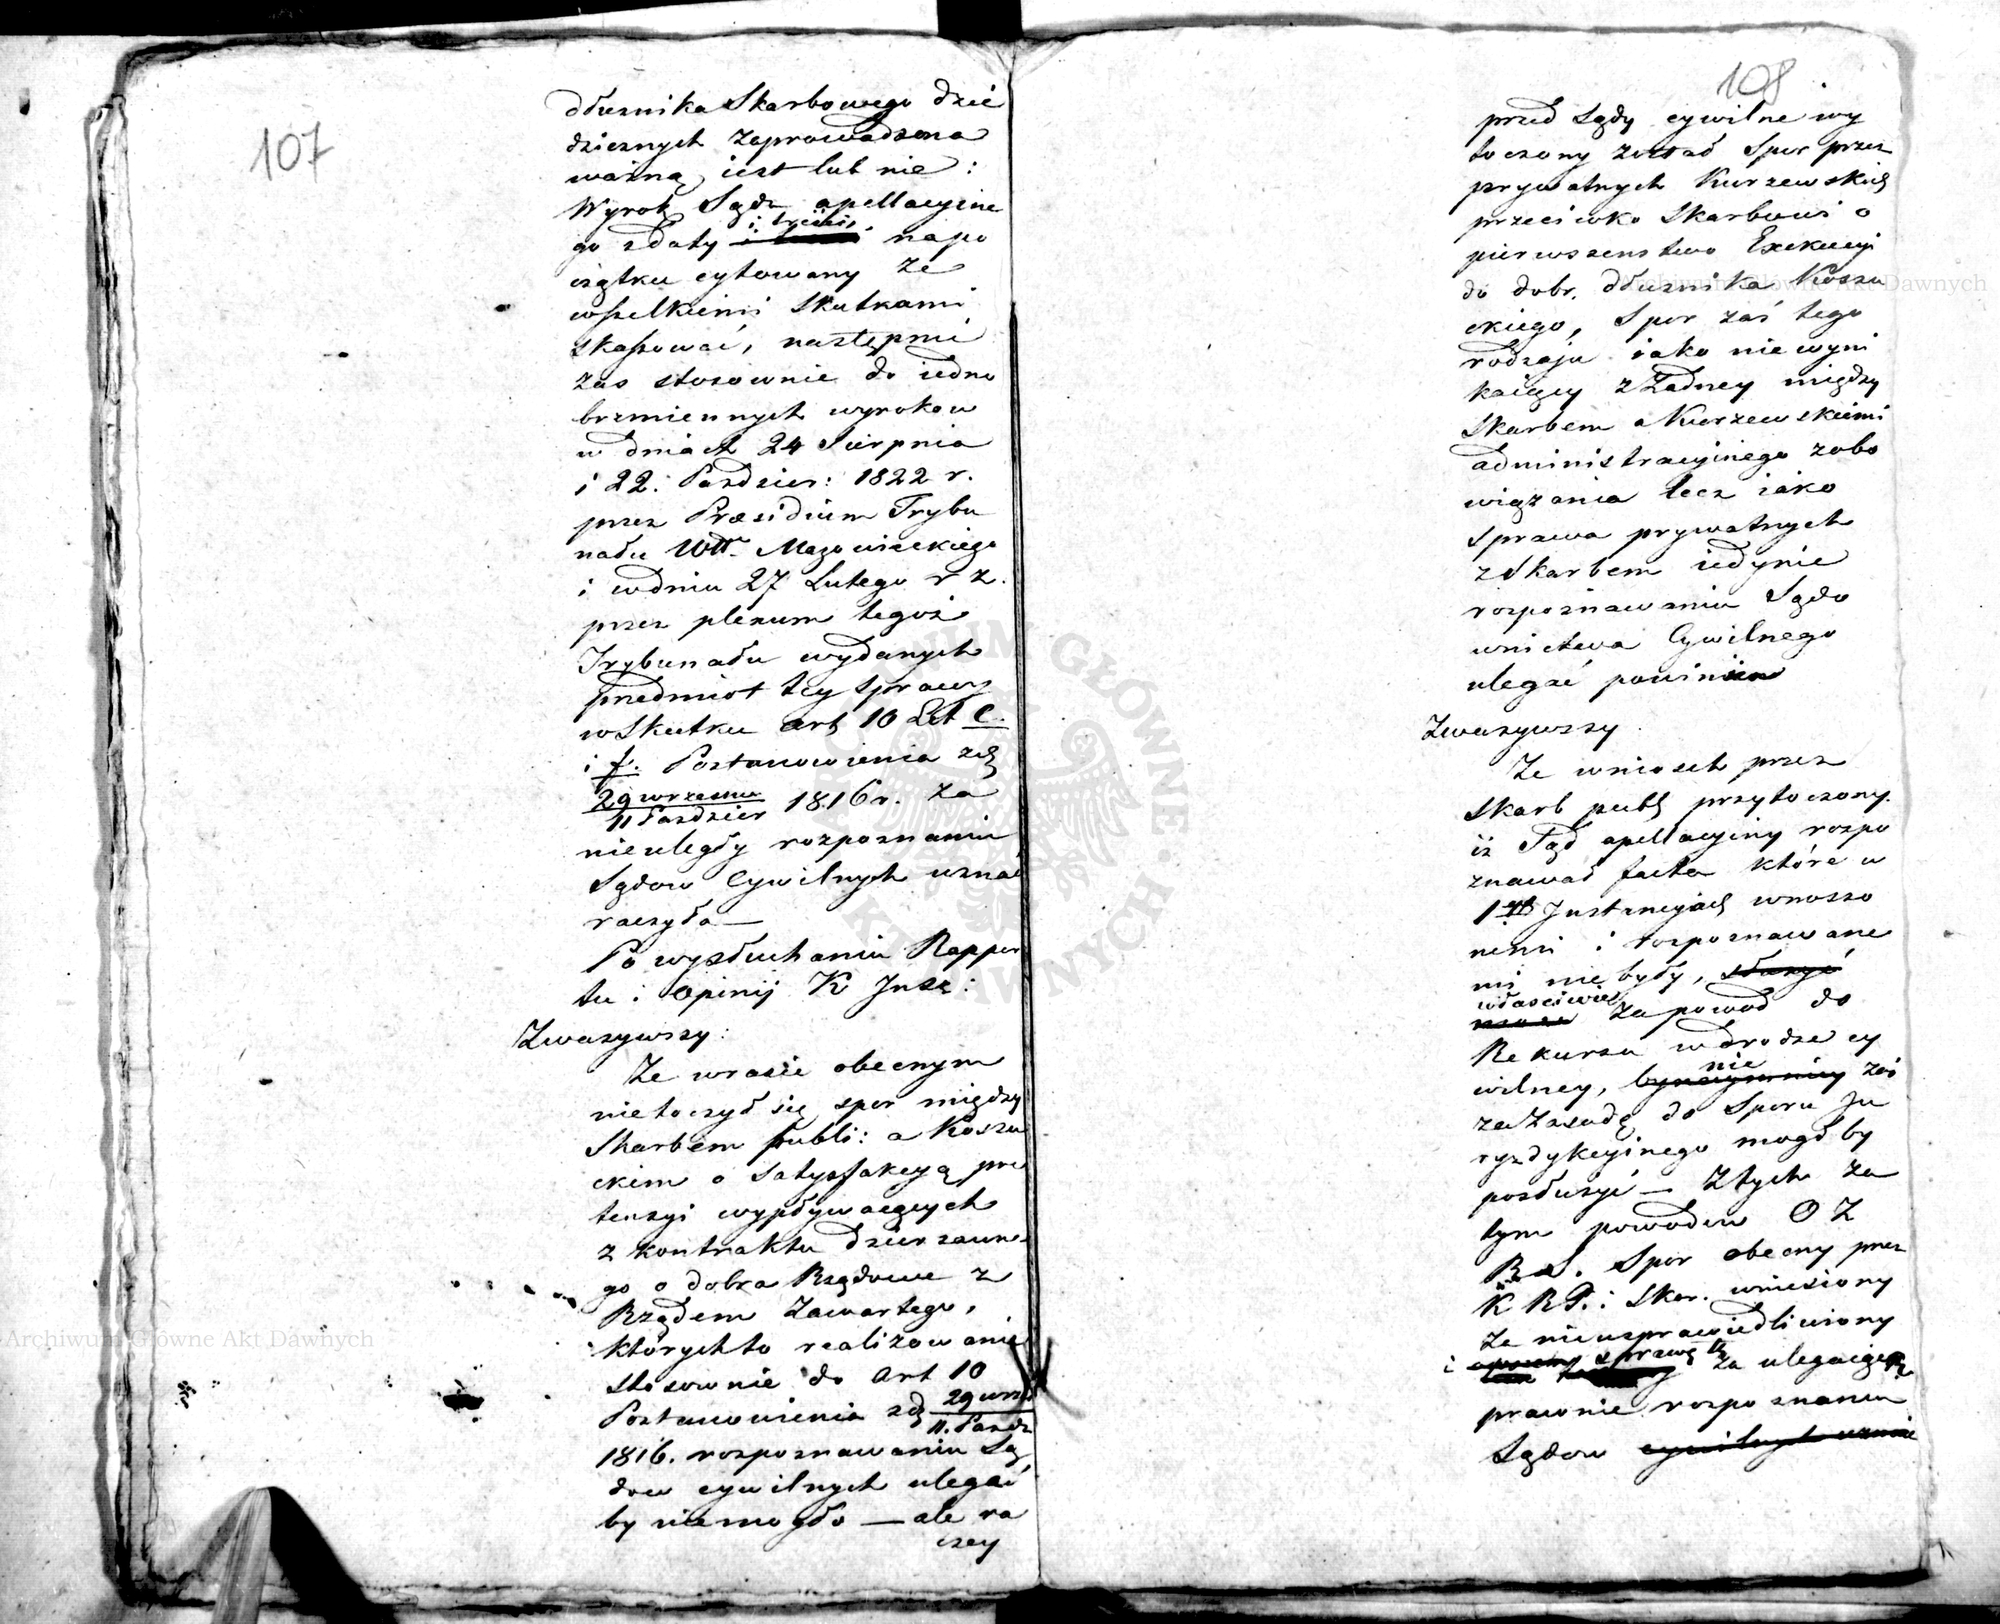 107
dłużnika Skarbowego dzie
dzicznych zaprowadzona
ważną iest lub nie:
Wyrok Sądu apellacyine
go z daty i treści napo
czątku cytowany ze
wszelkiemi skutkami
skassować, następnie
zas stosownie do iedno
brzmiennych wyrokow
w dniach 24 Sierpnia
i 22. Pazdzier: 1822 r.
przez Præsidium Trybu
nału Wtt. Mazowieckiego
i wdniu 27 Lutego r z.
przez plenum tegoż
Trybunału wydanych
przedmiot tey sprawy
wskutku art 10 Lit e.
i f. Postanowienia
29 wrzesnia
11 Pazdzier 1816 r. za
nieuległy rozpoznaniu
Sądow Cywilnych uznać
raczyła —
Po wysłuchaniu Rappor
tu i Opinij K
Zwazywszy:
Ze wrazie obecnym
nietoczył się spor między
Skarbem publi: a Koszu
ckim o Satysfakcyą pre
tensyi wypływaiących
z kontraktu dzierzawne
go o dobra Rządowe z
Rządem zawartego,
którychto realizowanie
stosownie do Art 10
Postanowienia 29 wrz
11. Pazdz
1816. rozpoznawaniu Są
dow cywilnych ulegać
by niemogło — ale ra
czey
108
przed Sądy cywilne wy
toczony został Spor przez
prywatnych Kurzewskich
przeciwko Skarbowi o
pierwszenstwo Exekucyi
do dobr. dłużnika Koszu
ckiego, Spor zaś tego
rodzaju iako niewyni
kaiący z Zadney między
Skarbem a Kurzewskiemi
administracyinego zobo
wiązania lecz iako
Sprawa prywatnych
z Skarbem iedynie
rozpoznawaniu Sądo
wnictwa Cywilnego
ulegać powinien
Zwazywszy
Ze wniosek przez
Skarb publ przytoczony.
iz Sąd apellacyiny rozpo
znawał facta które w
1 Instancyiach wnoszo
nemi i rozpoznawane
mi nie były, służyć
właściwiey
za powod do
Rekursu wdrodze cy
wilney, nie zaś
za zasadę do Sporu Ju
ryzdykcyinego mogł by
posłużyć — Z tych za
tym powodow O Z
R S. Spor obecny przez
K R P. i Skar. wniesiony
za nieusprawiedliwiony
i sprawę tę za ulegaiącą
prawnie rozpoznaniu
Sądow cywilnych uznaie
Archiwum Główne Akt Dawnych
Archiwum Główne Akt Dawnych